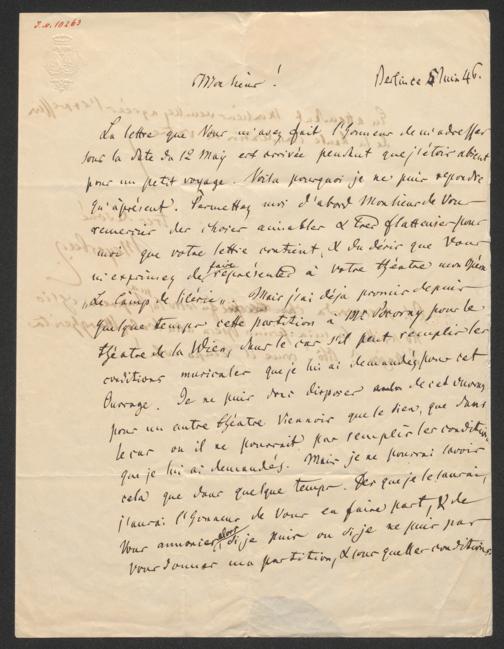 I.N. 10263
Monsieur!
Berlin ce 5 Juin 46.
La lettre que Vous m'avez fait l'honneur de m'adresser
sous la date du 12 Maij est arrivée pendant que j'étois absent
pour un petit voyage. Voila pourquoi je ne puis repondre
qu'àprésent. Permettez moi d'abord Monsieur de Vous
remercier des choses aimables & tres flatteuses pour
moi que votre lettre contient, & du désir que Vous
m'exprimez de faire représenter à votre théatre mon Opéra
„Le Camp de Silésie". Mais j'ai déja promis depuis
quelque temps cette partition à Mr Pokorny pour le
théatre de la Wien, dans le cas s'il peut remplir les
conditions musicales que je lui ai demandées pour cet
Ouvrage. Je ne puis donc disposer de cet Ouvrage
pour un autre théatre Viennois que le sien, que dans
le cas ou il ne pourroit pas remplir les conditions
que je lui ai demandés. Mais je ne pourrai savoir
cela que dans quelque temps. Des que je le saurai,
j'aurai l'honneur de Vous en faire part, & de
Vous annoncer alors, si je puis ou si je ne puis pas
vous donner ma partition, & sous quelles conditions